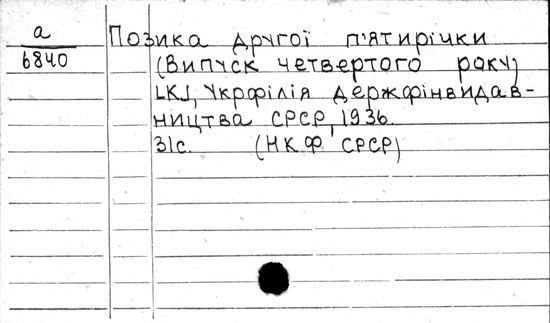 а
6840
Позика другої п'ятирічки
(Випуск четвертого року)
[К], Укрфілія Держфінвидав-
ництва СРСР, 1936.
31с. (НКФ СРСР)